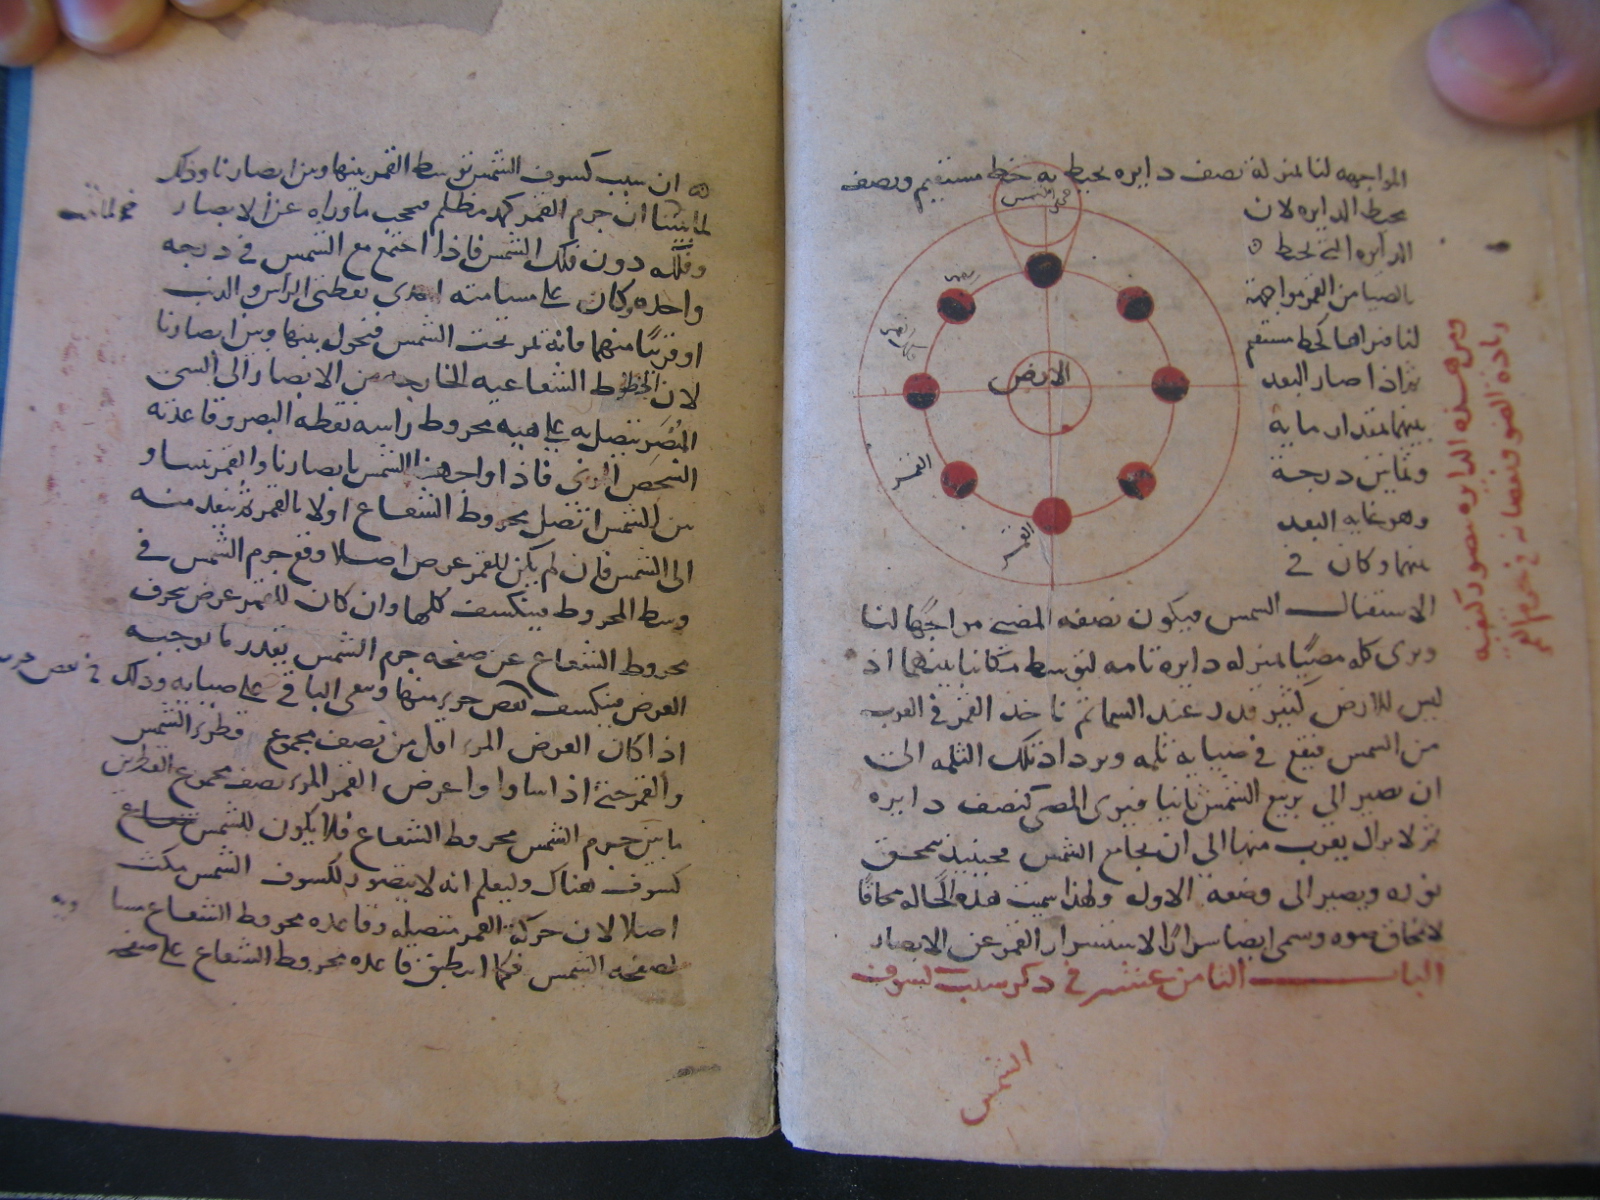 المواجهه لنا بمنزلة نصف دايره يحيط به خط مستقيم ونصف
محيط الدايره لان
الدايره التي تحيط
بالضيا من القمر مواجهة
لنا فنراها كخط مستقيم
ثم اذا صار البعد
بينهما بمقدار ماية
وثمانين درجة
وهو غايه البعد
بينهما وكان في
الاستقبال الشمس فيكون نصفه المضي مواجها لنا
ويرى كله مضيا بمنزله دايرة تامه لتوسط مكاننا بينهما اذ
ليس للارض كثير قدر عند السما ثم ناخذ القمر في القرب
من الشمس فيقع في ضيايه ثلمه ويزداد تلك الثلمه الى
ان يصير الى تربيع الشمس ثانيا فيرى المضي كنصف دايره
ثم لا يزال يقرب منها الى ان يجامع الشمس فحينيذ ينمحق
نوره ويصير الى وضعه الاول ولهذا سميت هذه الحاله محاقا
لانمحاق ضوه وسمي ايضا سرارا لاستسرار القمر عن الابصار
الباب الثامن عشر في ذكر سبب كسوف
الشمس
جرم الشمس
الارض
القمر
القمر
ومن هذه الدايره يتصور كيفيه
زيادة الضو ونقصانه في جرم القمر
ان سبب كسوف الشمس توسط القمر بينها وبين ابصارنا وذلك
لما بينا ان جرم القمر كمد مظلم فيحجب ماوراه عن الابصار
وفلكه دون فلك الشمس فاذا اجتمع مع الشمس في درجه
واحده وكان على مسامته احدى نقطتي الراس والذنب
او قريبا منهما فانه يمر تحت الشمس فيحول بينها وبين ابصارنا
لان الخطوط الشعاعيه الخارجه من الابصار الى الشي
المبصر يتصل به على هيه مخروط راسه نقطه البصر وقاعدته
الشخص المرئي فاذا واجهنا الشمس بابصارنا والقمر بيننا و
بين الشمس اتصل مخروط الشعاع اولا بالقمر ثم ينفد منه
الى الشمس فان لم يكن للقمر عرض اصلا وقع جرم الشمس في
وسط المخروط فينكسف كلها وان كان للقمر عرض يحرف
مخروط الشعاع عن صفحه جرم الشمس بقدر ما يوجبه
العرض فينكسف بعض جرم منها وبقى الباقي على ضيايه وذلك
اذا كان العرض المرئي اقل من نصف مجموع قطري الشمس
والقمر حتى اذا ساوا عرض القمر المرئي نصف مجموع القطرين
ماس جرم الشمس مخروط الشعاع فلا يكون للشمس
كسوف هناك وليعلم انه لا يتصور لكسوف الشمس مكث
اصلا لان حركة القمر متصله وقاعده مخروط الشعاع مساويه
لصفحه الشمس فكما انطبق قاعده مخروط الشعاع على صفحه